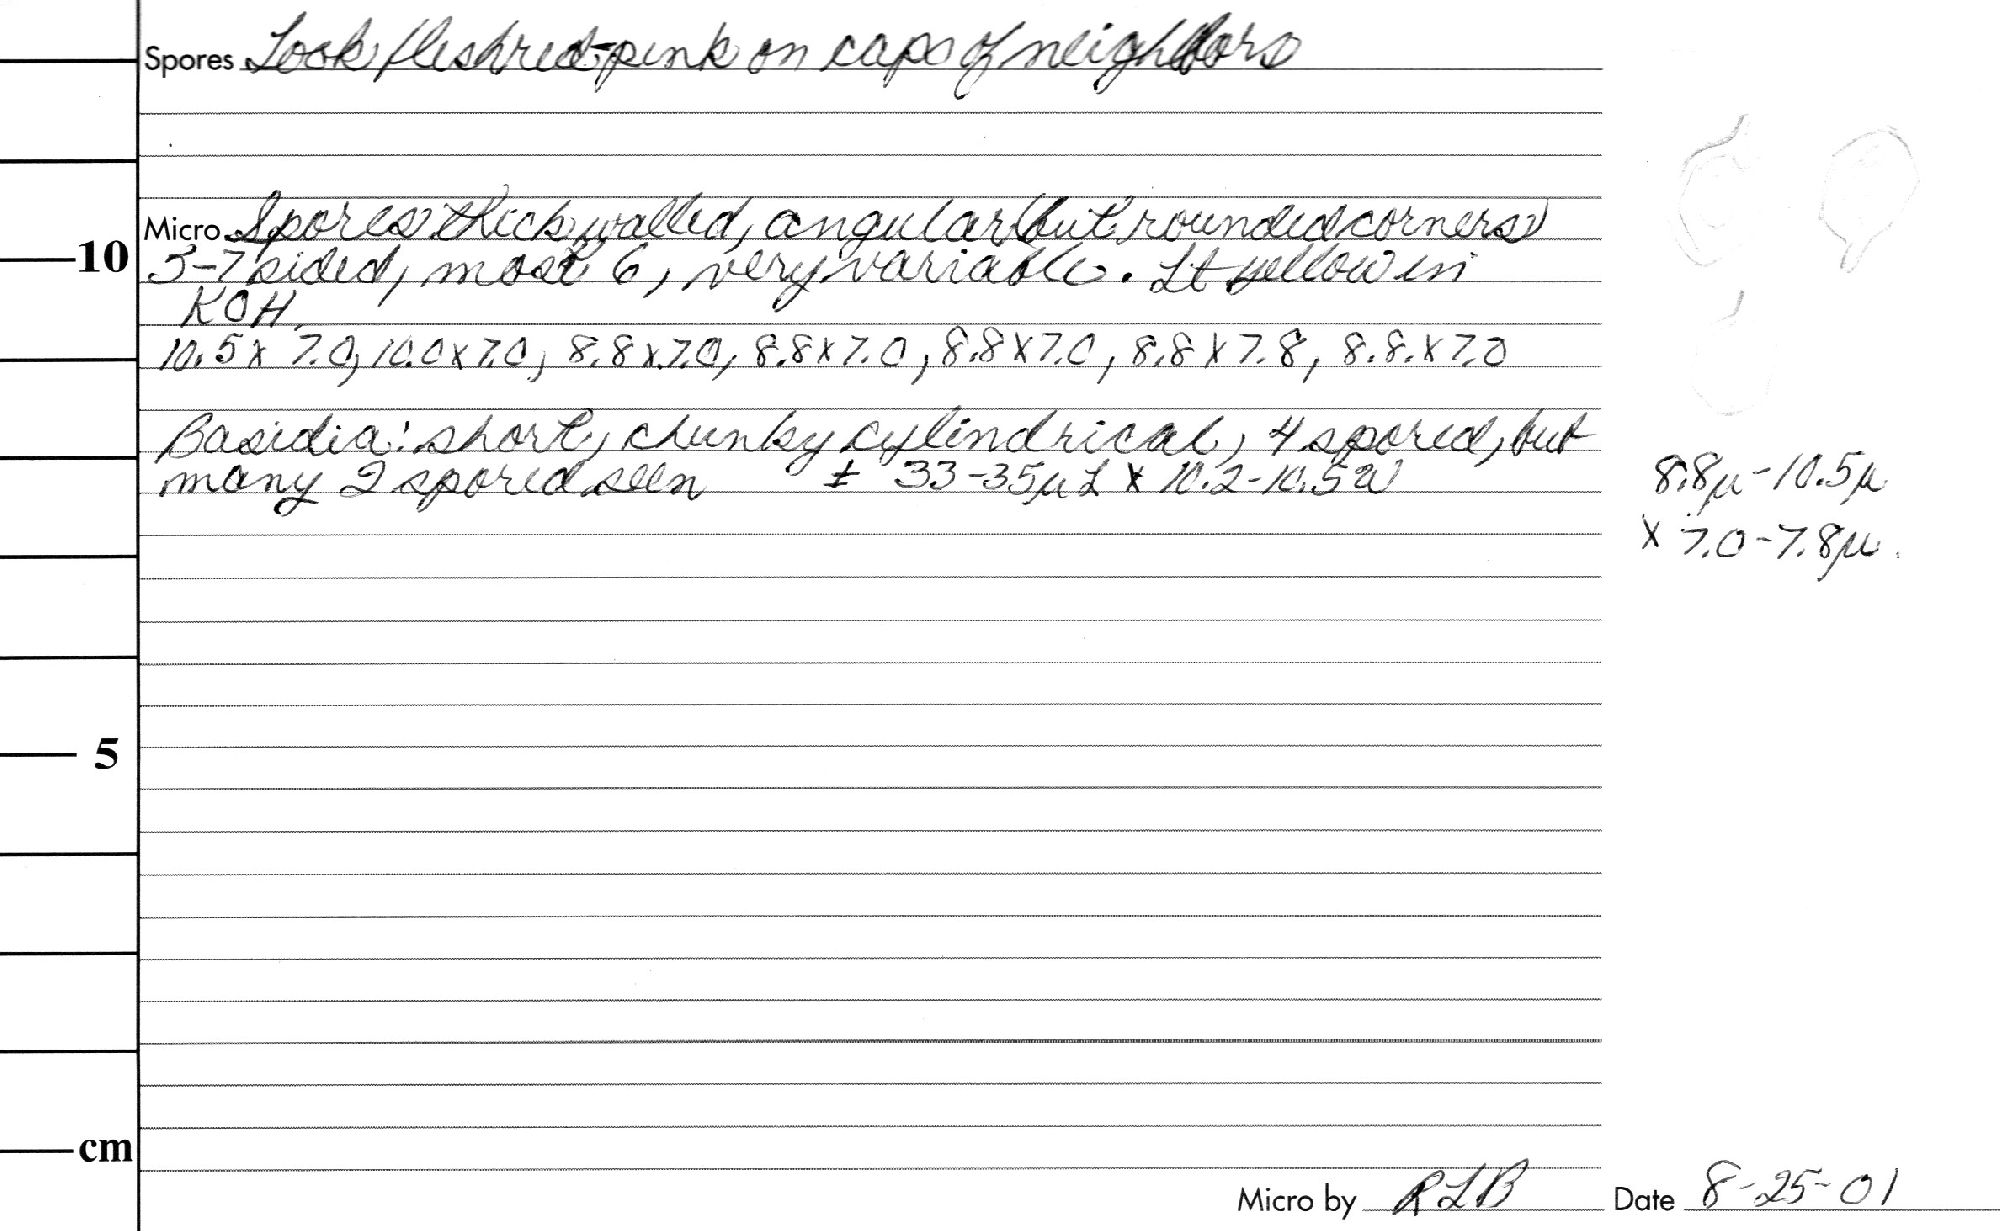 Spores Look fleshred-pink on caps of neighbors
Micro Spores thick walled, angular (but rounded corners)
10 5-7 sided, most 6, very variable. Lt yellow in
KOH
10.5 x 7.0, 10.0 x 7.0, 8.8 x 7.0, 8.8 x 7.0, 8.8 x 7.0, 8.8 x 7.8, 8.8. x 7.0
Basidia: short, chunky cylindrical, 4 spored, but
many 2 spored seen ± 33-35µ L x 10.2-10.5 W
8.8µ-10.5µ
x 7.0-7.8µ
5
cm
Micro by RLB Date 8-25-01